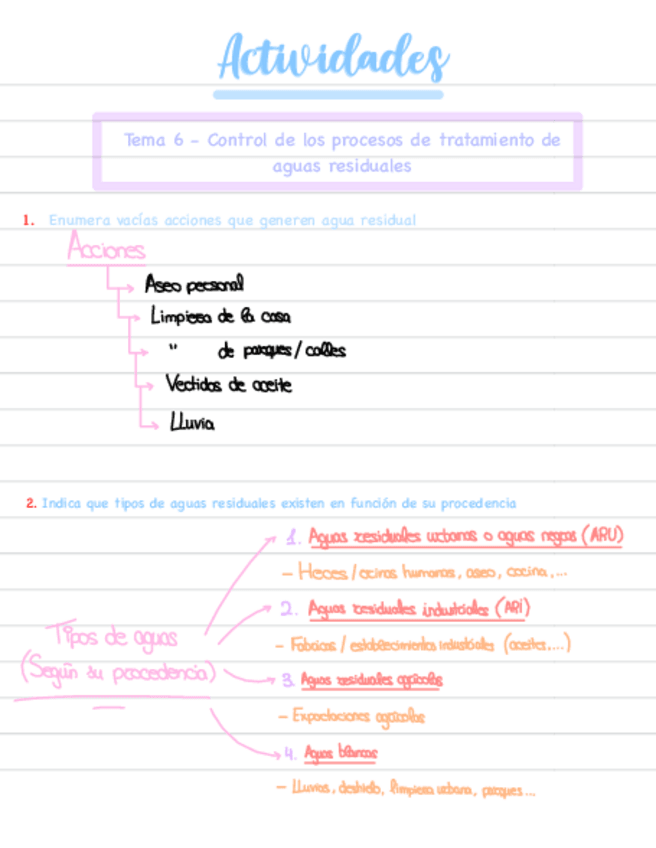 Actividades
Tema 6 - Control de los procesos de tratamiento de
aguas residuales
1. Enumera varías acciones que generen agua residual
Acciones
Aseo personal
Limpieza de la casa
" de parques/calles
Vertidos de aceite
Lluvia
2. Indica que tipos de aguas residuales existen en función de su procedencia
1. Aguas residuales urbanas o aguas negras (ARU)
- Heces/orinas humanas, aseo, cocina,...
2. Aguas residuales industriales (ARI)
- Fábricas / establecimientos industriales (aceites,...)
Tipos de aguas
(Según su procedencia)
3. Aguas residuales agrícolas
- Expoctaciones agrícolas
4. Aguas blancas
- Lluvias, deshielo, limpieza urbana, parques...